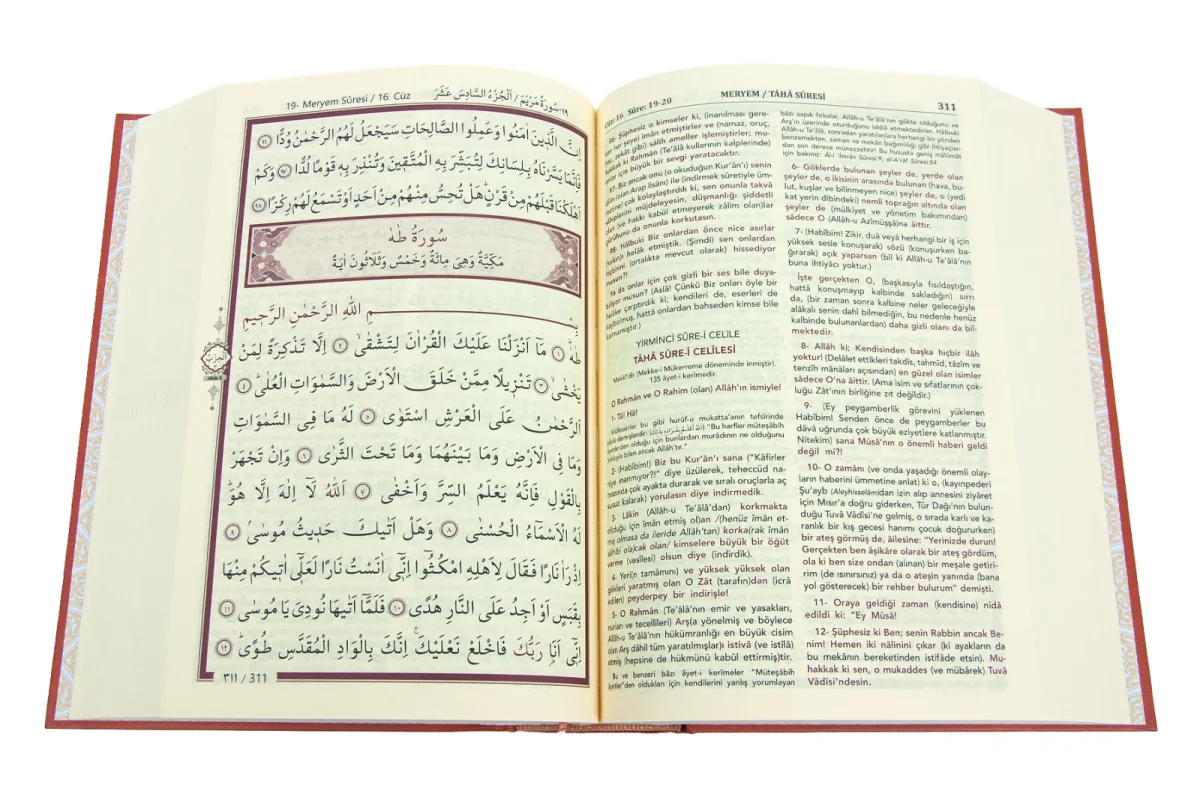 19- Meryem Sûresi / 16. Cüz
١٩-سُورَةُ مَرْيَمَ / اَلْجُزْءُ السَّادِسَ عَشَرَ
اِنَّ الَّذ۪ينَ اٰمَنُوا وَعَمِلُوا الصَّالِحَاتِ سَيَجْعَلُ لَهُمُ الرَّحْمٰنُ وُدًّا ﴿٩٦﴾
فَاِنَّمَا يَسَّرْنَاهُ بِلِسَانِكَ لِتُبَشِّرَ بِهِ الْمُتَّق۪ينَ وَتُنْذِرَ بِه۪ قَوْمًا لُدًّا ﴿٩٧﴾ وَكَمْ
اَهْلَكْنَا قَبْلَهُمْ مِنْ قَرْنٍۜ هَلْ تُحِسُّ مِنْهُمْ مِنْ اَحَدٍ اَوْ تَسْمَعُ لَهُمْ رِكْزًا ﴿٩٨﴾
سُورَةُ طٰهٰ
مَكِّيَّةٌ وَهِيَ مِائَةٌ وَخَمْسٌ وَثَلَاثُونَ اٰيَةً
بِسْــــمِ اللّٰهِ الرَّحْمٰنِ الرَّح۪يمِ
طٰهٰۜ ﴿١﴾ مَٓا اَنْزَلْنَا عَلَيْكَ الْقُرْاٰنَ لِتَشْقٰىۙ ﴿٢﴾ اِلَّا تَذْكِرَةً لِمَنْ
يَخْشٰىۙ ﴿٣﴾ تَنْز۪يلًا مِمَّنْ خَلَقَ الْاَرْضَ وَالسَّمٰوَاتِ الْعُلٰىۜ ﴿٤﴾
اَلرَّحْمٰنُ عَلَى الْعَرْشِ اسْتَوٰى ﴿٥﴾ لَهُ مَا فِي السَّمٰوَاتِ
وَمَا فِي الْاَرْضِ وَمَا بَيْنَهُمَا وَمَا تَحْتَ الثَّرٰى ﴿٦﴾ وَاِنْ تَجْهَرْ
بِالْقَوْلِ فَاِنَّهُ يَعْلَمُ السِّرَّ وَاَخْفٰى ﴿٧﴾ اَللّٰهُ لَٓا اِلٰهَ اِلَّا هُوَۜ
لَهُ الْاَسْمَٓاءُ الْحُسْنٰى ﴿٨﴾ وَهَلْ اَتٰيكَ حَد۪يثُ مُوسٰىۢ ﴿٩﴾
اِذْ رَاٰ نَارًا فَقَالَ لِاَهْلِهِ امْكُثُٓوا اِنّ۪ٓي اٰنَسْتُ نَارًا لَعَلّ۪ٓي اٰت۪يكُمْ مِنْهَا
بِقَبَسٍ اَوْ اَجِدُ عَلَى النَّارِ هُدًى ﴿١٠﴾ فَلَمَّٓا اَتٰيهَا نُودِيَ يَا مُوسٰىۜ ﴿١١﴾
اِنّ۪ٓي اَنَا۬ رَبُّكَ فَاخْلَعْ نَعْلَيْكَۚ اِنَّكَ بِالْوَادِ الْمُقَدَّسِ طُوًىۜ ﴿١٢﴾
٣١١ / 311
Cüz: 16 Sûre: 19-20
MERYEM / TÂHÂ SÛRESİ
311
96- Şüphesiz o kimseler ki, (inanılması gere-
ken her şeye) îmân etmiştirler ve (namaz, oruç,
hac, zekât gibi) sâlih ameller işlemiştirler; mu-
hakkak ki Rahmân (Te'âlâ kullarının kalplerinde)
onlar için büyük bir sevgi yaratacaktır.
97- Biz ancak onu (o okuduğun Kur'ân'ı) senin
dilin (olan Arap lisânı) ile (indirmek sûretiyle üm-
metine) çok kolaylaştırdık ki, sen onunla takvâ
sâhiplerini müjdeleyesin, düşmanlığı şiddetli
olan (ve hakkı kabûl etmeyerek zâlim olan)lar
gürûhunu da onunla korkutasın.
98- Hâlbuki Biz onlardan önce nice asırlar
(halkını) helâk etmiştik. (Şimdi) sen onlardan
hiçbirini (ortalıkta mevcut olarak) hissediyor
musun?!
Ya da onlar için çok gizli bir ses bile duya-
biliyor musun? (Aslâ! Çünkü Biz onları öyle bir
helâke çarptırdık ki; kendileri de, eserleri de
kaybolmuş, hattâ onlardan bahseden kimse bile
kalmamıştır.)
YİRMİNCİ SÛRE-İ CELİLE
TÂHÂ SÛRE-İ CELÎLESİ
Mekkî'dir (Mekke-i Mükerreme döneminde inmiştir).
135 âyet-i kerîmedir.
O Rahmân ve O Rahîm (olan) Allâh'ın ismiyle!
1- Tâ! Hâ!
Müfessirler bu gibi hurûf-u mukatta'anın tefsirinde
"Bu harfler müteşâbih
âyetlerden olduğu için bunlardan murâdının ne olduğunu
hakkıyla bilen ancak Allâh'tır."
2- (Habîbim!) Biz bu Kur'ân'ı sana ("Kâfirler
niye inanmıyor?!" diye üzülerek, teheccüd na-
mazında çok ayakta durarak ve sıralı oruçlarla aç
susuz kalarak) yorulasın diye indirmedik.
3- Lâkin (Allâh-u Te'âlâ'dan) korkmakta
olduğu için îmân etmiş ol)an /(henüz îmân et-
miş olmasa da ileride Allâh'tan) korka(rak îmân
sâhibi ola)cak olan/ kimselere büyük bir öğüt
verme (vesîlesi) olsun diye (indirdik).
4- Yeri(n tamâmını) ve yüksek yüksek olan
gökleri yaratmış olan O Zât (tarafın)dan (icrâ
edilen) peyderpey bir indirişle!
5- O Rahmân (Te'âlâ'nın emir ve yasakları,
nurları ve tecellîleri) Arş(a yönelmiş ve böylece
Allâh-u Te'âlâ'nın hükümranlığı en büyük cisim
olan Arş dâhil tüm yaratılmışlar)ı istivâ (ve istîlâ)
etmiş (hepsine de hükmünü kabûl ettirmiş)tir.
Bu ve benzeri bâzı âyet-i kerîmeler "Müteşâbih
âyetler"den oldukları için kendilerini yanlış yorumlayan
bâzı sapık fırkalar, Allâh-u Te'âlâ'nın gökte olduğunu ve
Arş'ın üzerinde oturduğunu iddiâ etmektedirler. Hâlbuki
Allâh-u Te'âlâ, sonradan yaratılanlara herhangi bir yönden
benzemekten, zaman ve mekân bağımlılığı gibi ihtiyaçlar-
dan son derece münezzehtir! Bu hususta geniş mâlûmât
için bakınız: Âl-i 'Imrân Sûresi:9; el-A'râf Sûresi:54
6- Göklerde bulunan şeyler de, yerde olan
şeyler de, o ikisinin arasında bulunan (hava, bu-
lut, kuşlar ve bilinmeyen nice) şeyler de, o (yedi
kat yerin dibindeki) nemli toprağın altında olan
şeyler de (mülkiyet ve yönetim bakımından)
sâdece O (Allâh-u Azîmüşşâ)na âittir.
7- (Habîbim! Zikir, duâ veyâ herhangi bir iş için
yüksek sesle konuşarak) sözü (konuşurken ba-
ğırarak) açık yaparsan (bil ki Allâh-u Te'âlâ'nın
buna ihtiyâcı yoktur.)
İşte gerçekten O, (başkasıyla fısıldaştığın,
hattâ konuşmayıp kalbinde sakladığın) sırrı
da, (bir zaman sonra kalbine neler geleceğiyle
alâkalı senin dahî bilmediğin, bu nedenle henüz
kalbinde bulunanlardan) daha gizli olanı da bil-
mektedir.
8- Allâh ki; Kendisinden başka hiçbir ilâh
yoktur! (Delâlet ettikleri takdîs, tahmîd, tâzîm ve
tenzîh mânâları açısından) en güzel olan isimler
sâdece O'na âittir. (Ama isim ve sıfatlarının çok-
luğu Zât'ının birliğine zıt değildir.)
9. (Ey peygamberlik görevini yüklenen
Habîbim! Senden önce de peygamberler bu
dâvâ uğrunda çok büyük eziyetlere katlanmıştır.
Nitekim) sana Mûsâ'nın o önemli haberi geldi
değil mi?!
10- O zamânı (ve onda yaşadığı önemli olay-
ların haberini ümmetine anlat) ki o, (kayınpederi
Şu'ayb (Aleyhisselâm)dan izin alıp annesini ziyâret
için Mısır'a doğru giderken, Tûr Dağı'nın bulun-
duğu Tuvâ Vâdîsi'ne gelmiş, o sırada karlı ve ka-
ranlık bir kış gecesi hanımı çocuk doğururken)
bir ateş görmüş de, âilesine: "Yerinizde durun!
Gerçekten ben âşikâre olarak bir ateş gördüm,
ola ki ben size ondan (alınan) bir meşale getiri-
rim (de ısınırsınız) ya da o ateşin yanında (bana
yol gösterecek) bir rehber bulurum" demişti.
11- Oraya geldiği zaman (kendisine) nidâ
edildi ki: "Ey Mûsâ!
12- Şüphesiz ki Ben; senin Rabbin ancak Be-
nim! Hemen iki nâlinini çıkar (ki ayakların da
bu mekânın bereketinden istifâde etsin). Mu-
hakkak ki sen, o mukaddes (ve mübârek) Tuvâ
Vâdîsi'ndesin.